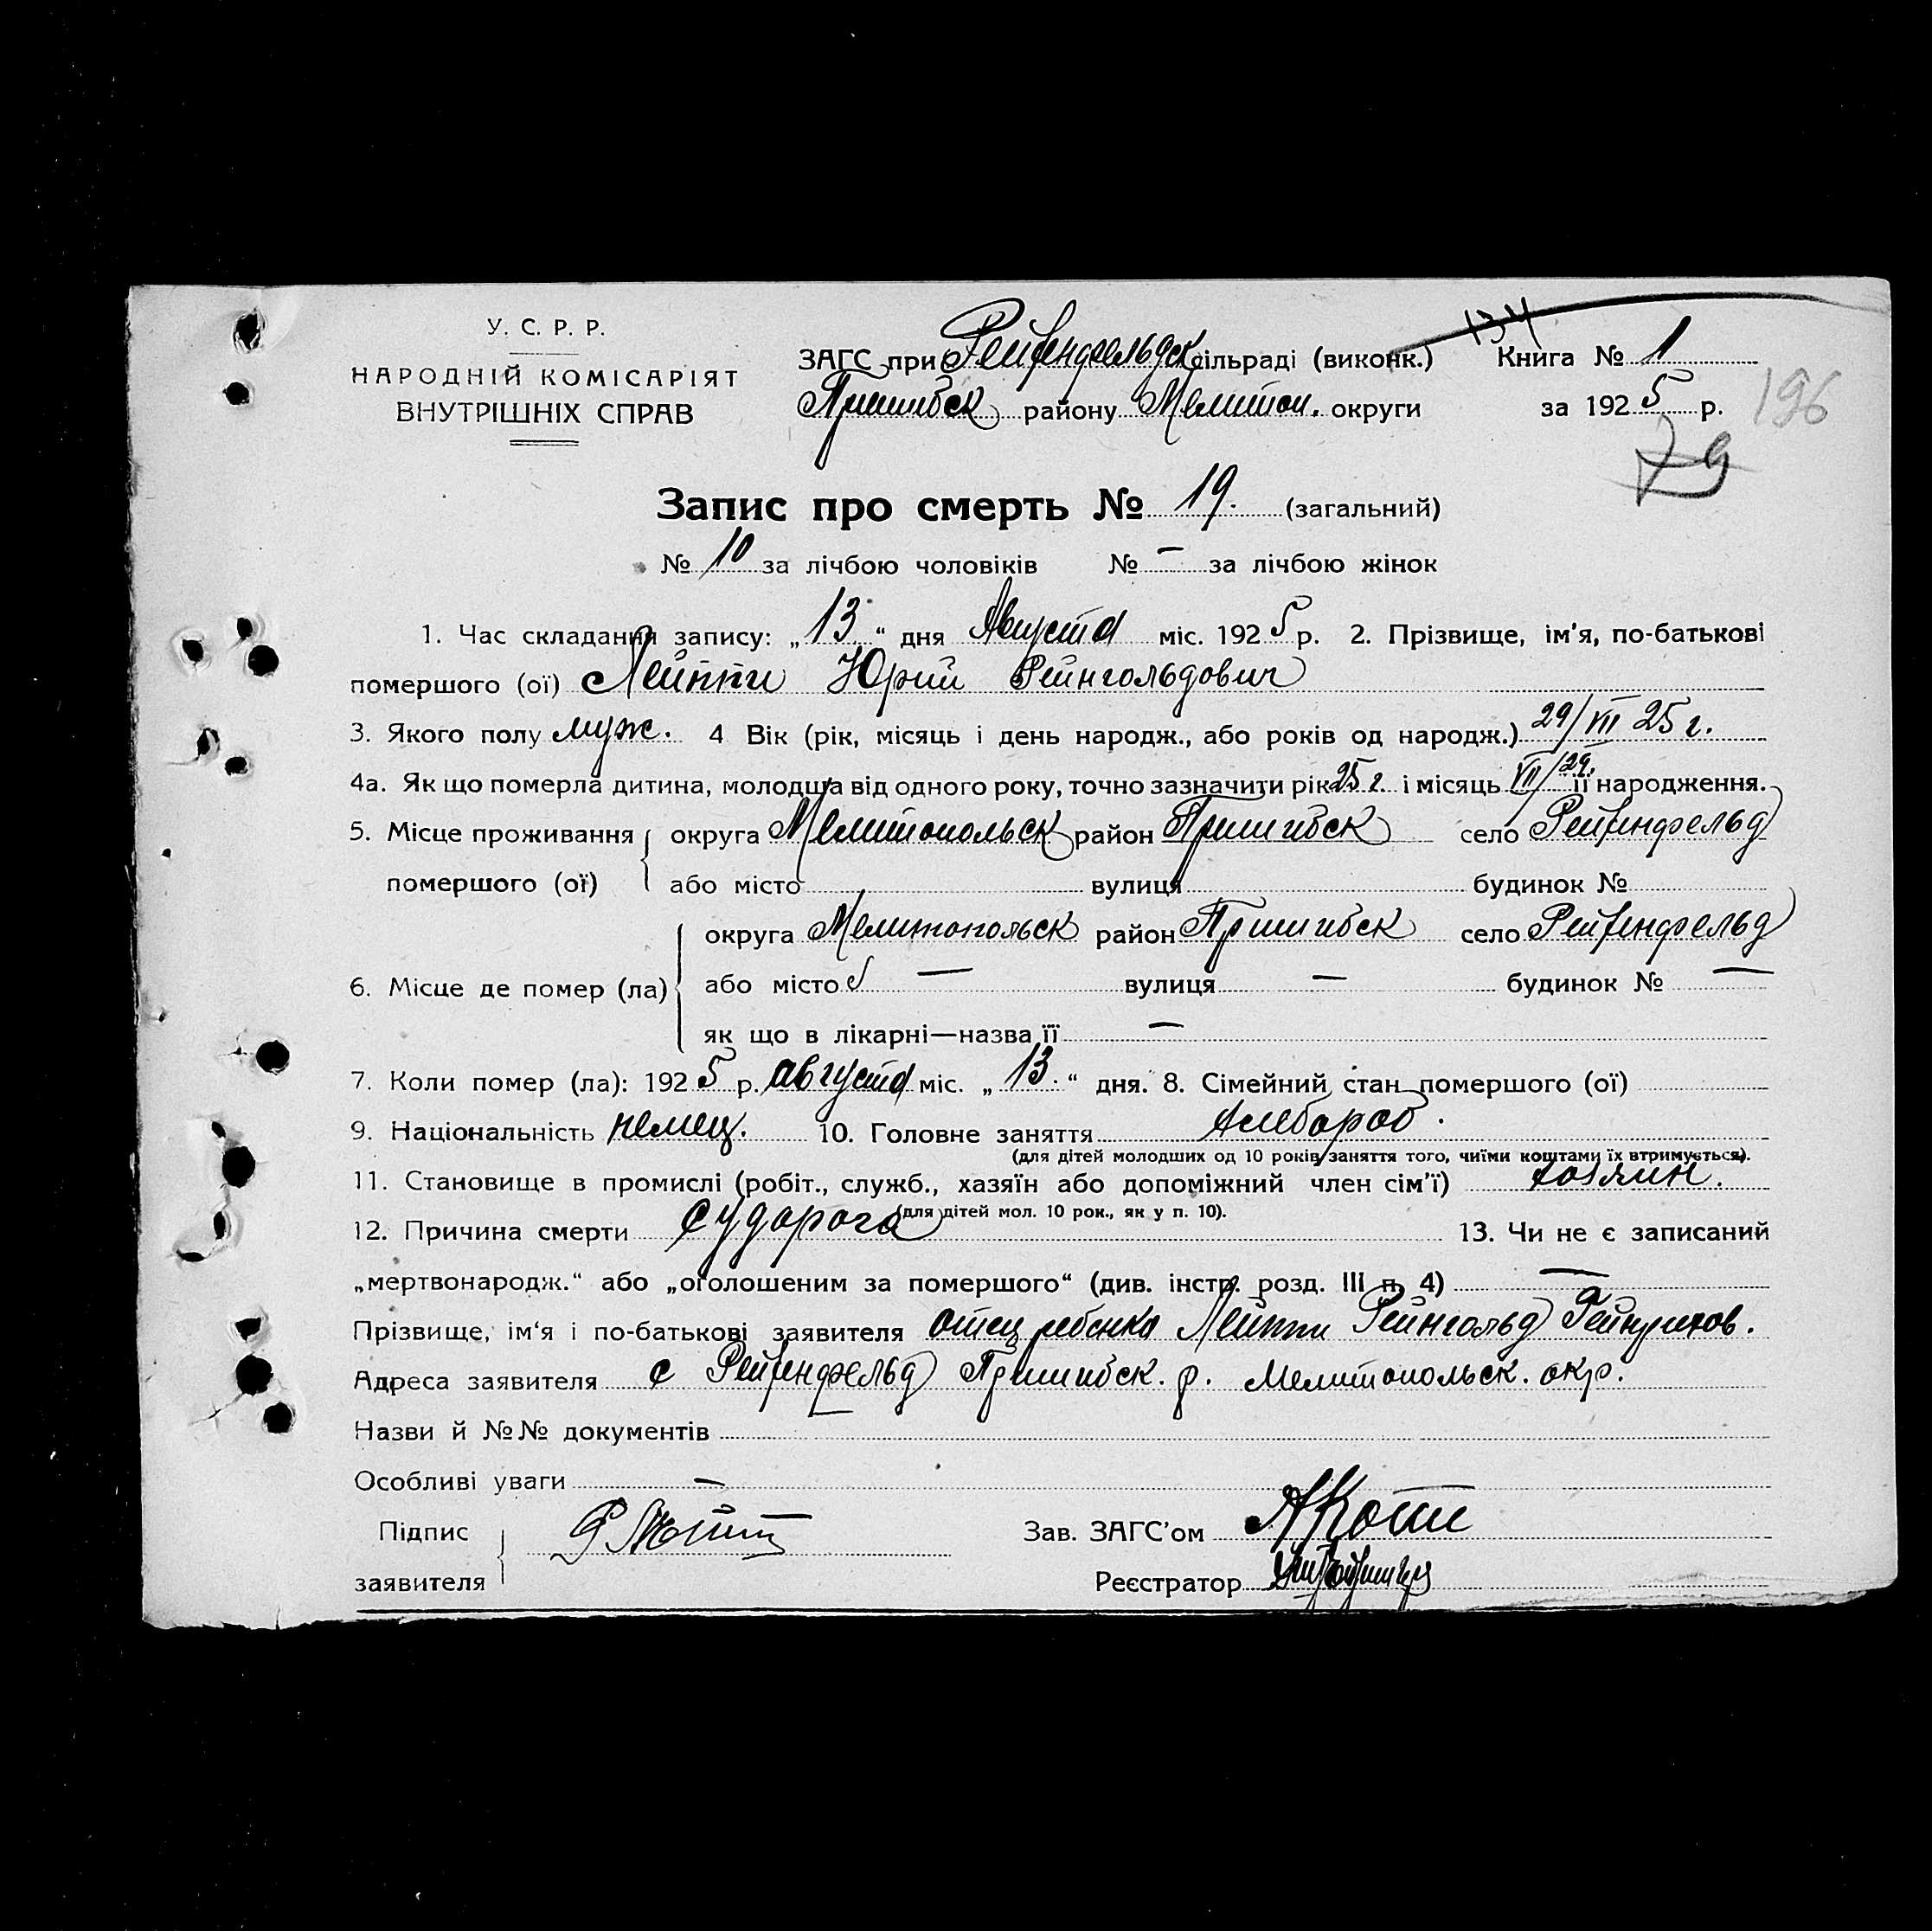 У. С. Р. Р.
НАРОДНІЙ КОМІСАРІЯТ
ВНУТРІШНІХ СПРАВ
ЗАГС при Рейхенфельдск сільраді (виконк.)
134
Книга № 1
Пришибск району Мелитоп. округи
за 1925 р.
196
79
Запис про смерть № 19. (загальний)
№ 10 за лічбою чоловіків № — за лічбою жінок
1. Час складання запису: „13“ дня Августа міс. 1925 р. 2. Прізвище, ім'я, по-батькові
помершого (ої) Лейппи Юрий Рейнгольдович
3. Якого полу муж. 4 Вік (рік, місяць і день народж., або років од народж.) 29/VII 25 г.
4а. Як що померла дитина, молодша від одного року, точно зазначити рік 25 г. і місяць VII/29. її народження.
5. Місце проживання округа Мелитопольск район Пришибск село Рейхенфельд
помершого (ої) або місто вулиця будинок №
округа Мелитопольск район Пришибск село Рейхенфельд
6. Місце де помер (ла) або місто — вулиця — будинок № —
як що в лікарні—назва її —
7. Коли помер (ла): 1925 р. августа міс. „13.“ дня. 8. Сімейний стан помершого (ої)
9. Національність немец. 10. Головне заняття хлебороб.
(для дітей молодших од 10 років заняття того, чиїми коштами їх втримується).
11. Становище в промислі (робіт., служб., хазяїн або допоміжний член сім'ї) хозяин.
(для дітей мол. 10 рок., як у п. 10).
12. Причина смерти судорога 13. Чи не є записаний
„мертвонародж.“ або „оголошеним за помершого“ (див. інстр. розд. III п. 4) —
Прізвище, ім'я і по-батькові заявителя отец ребенка Лейппи Рейнгольд Гейнрихов.
Адреса заявителя с Рейхенфельд Пришибск. р. Мелитопольск. окр.
Назви й №№ документів
Особливі уваги —
Підпис
заявителя
Зав. ЗАГС'ом
Реєстратор